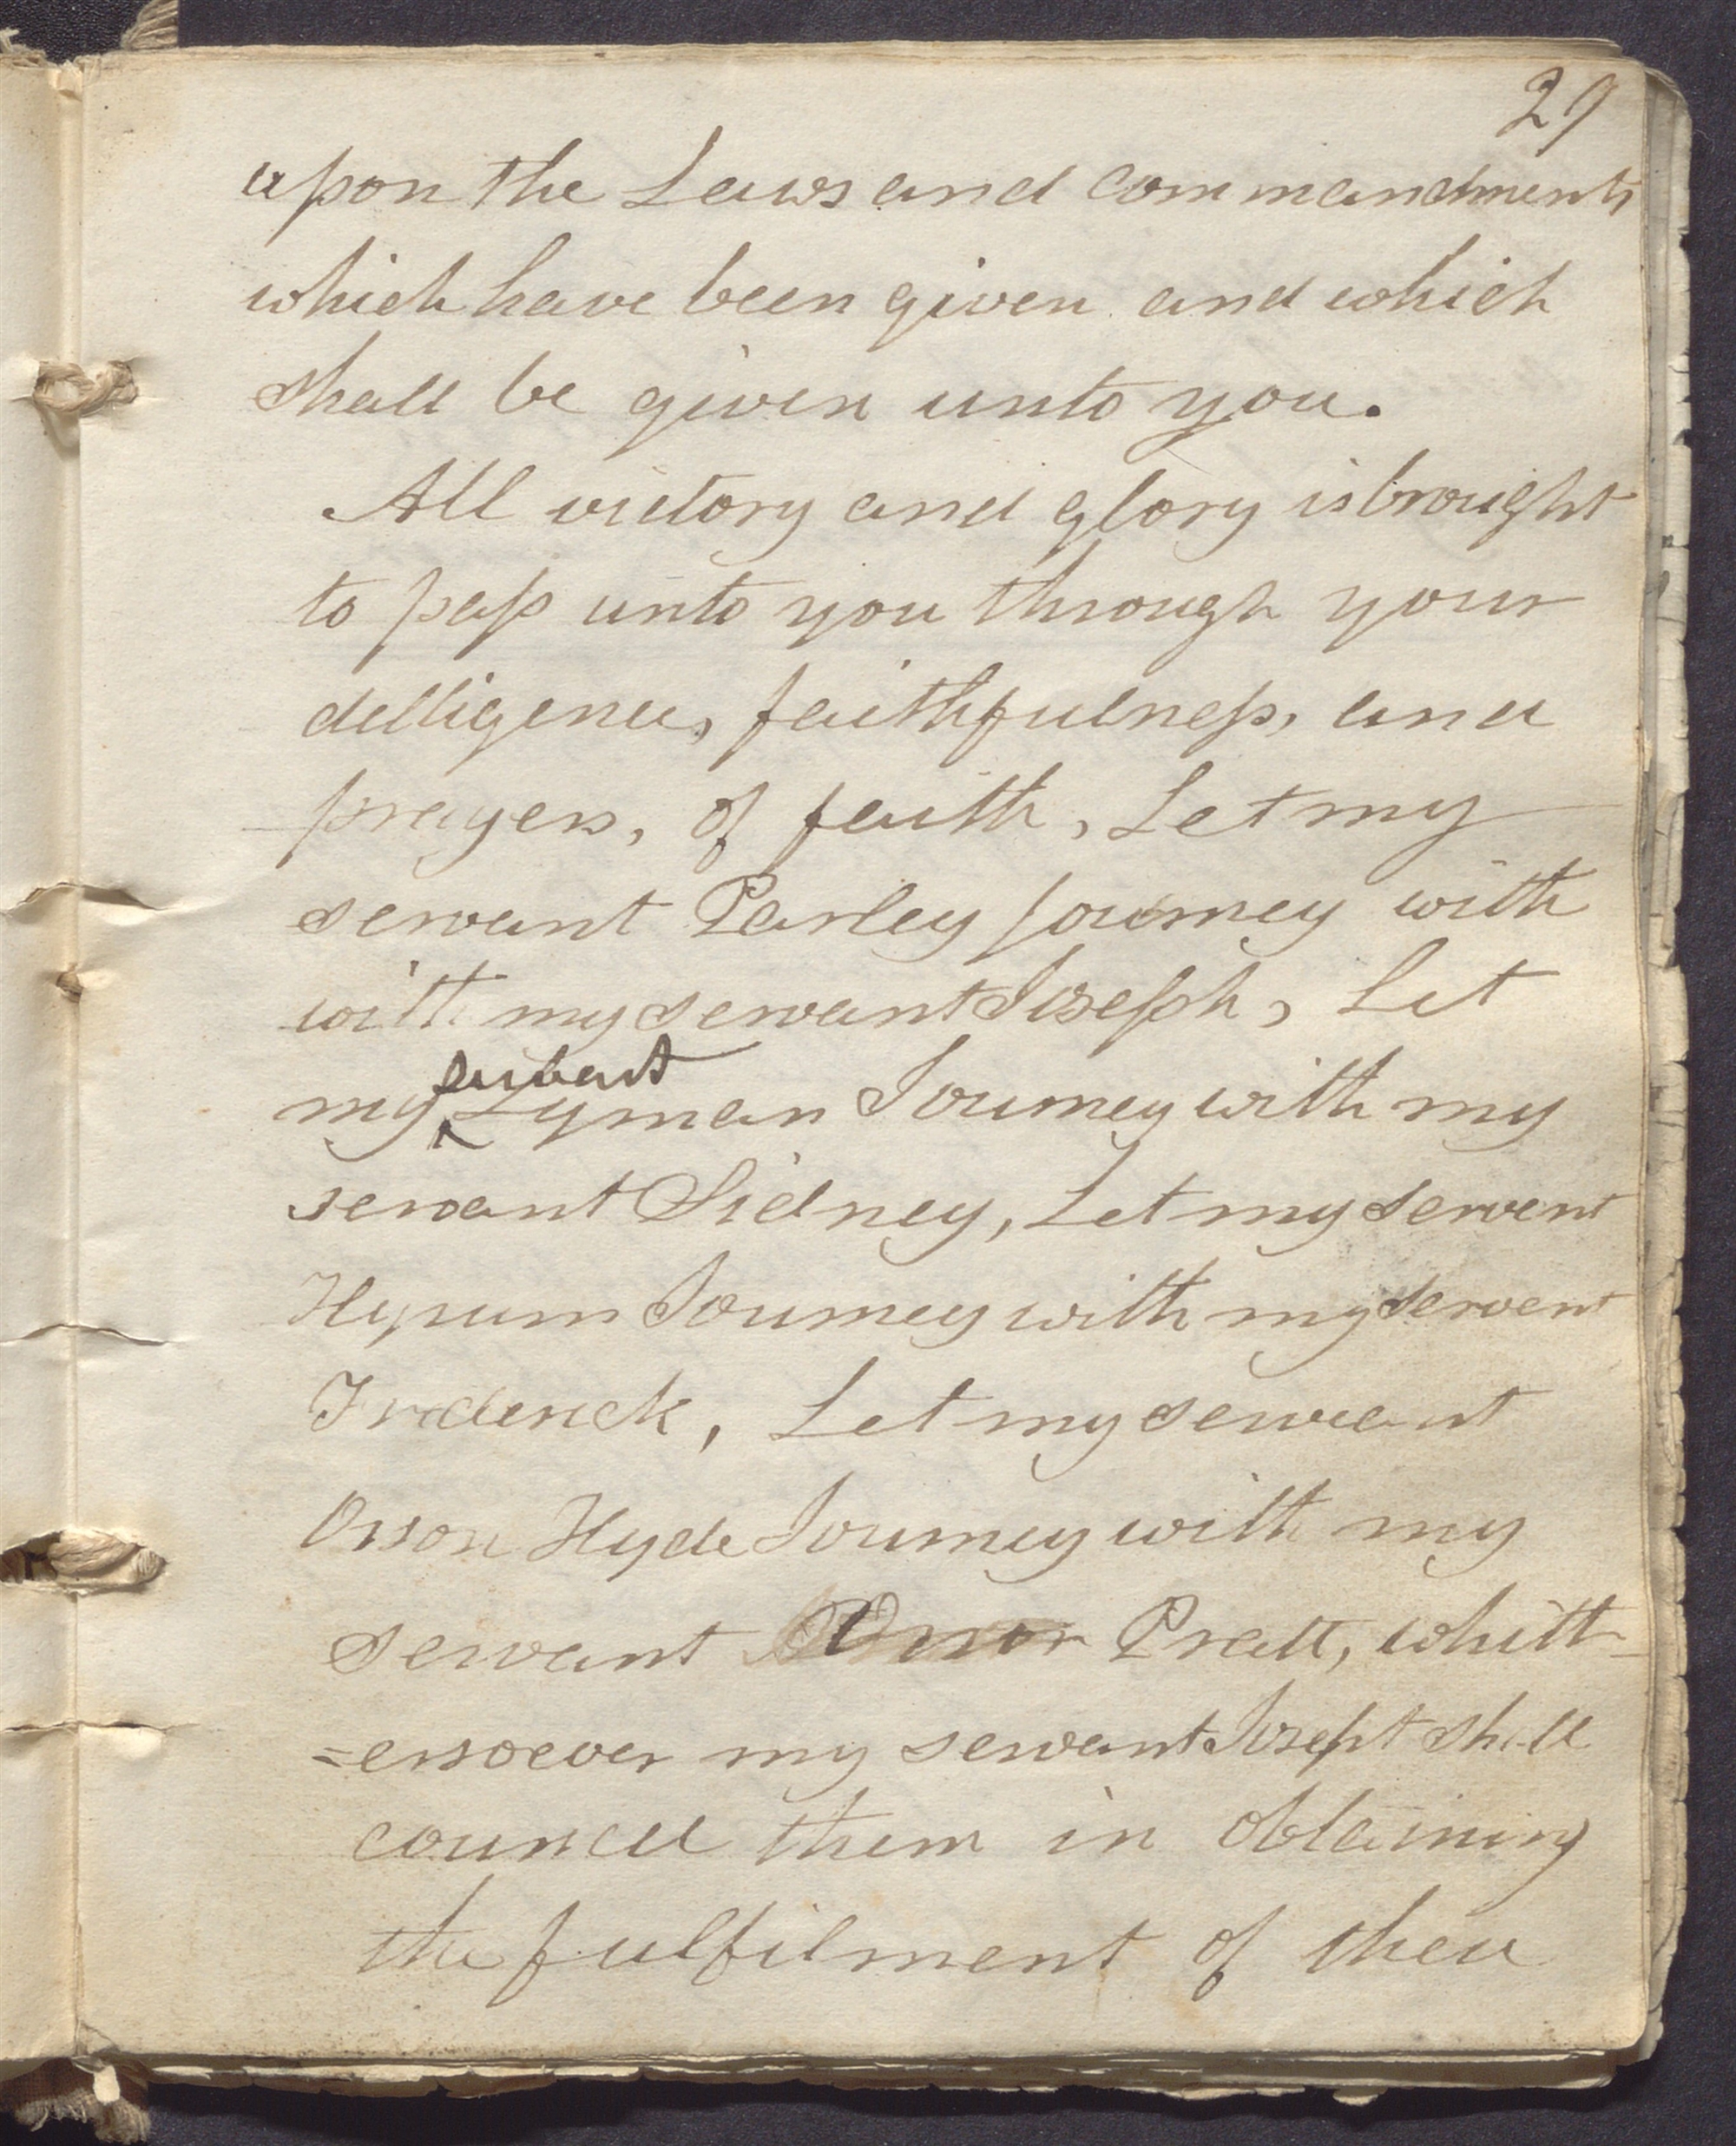 29
upon the Laws and commandments
which have been given and which
shall be given unto you.
All victory and glory is brought
to pass unto you through your
delligence, faithfulness, and
prayers, of faith, Let my
servant Parley journey with
with my servant Joseph, Let
my servant Lyman Journey with my
servant Sidney, Let my servent
Hyrum Journey with my servent
Frederick, Let my servant
Orson Hyde Journey with my
servant Orson Pratt, whitt-
=ersoever my servant Joseph shall
councel them in obtaining
the fulfilment of their